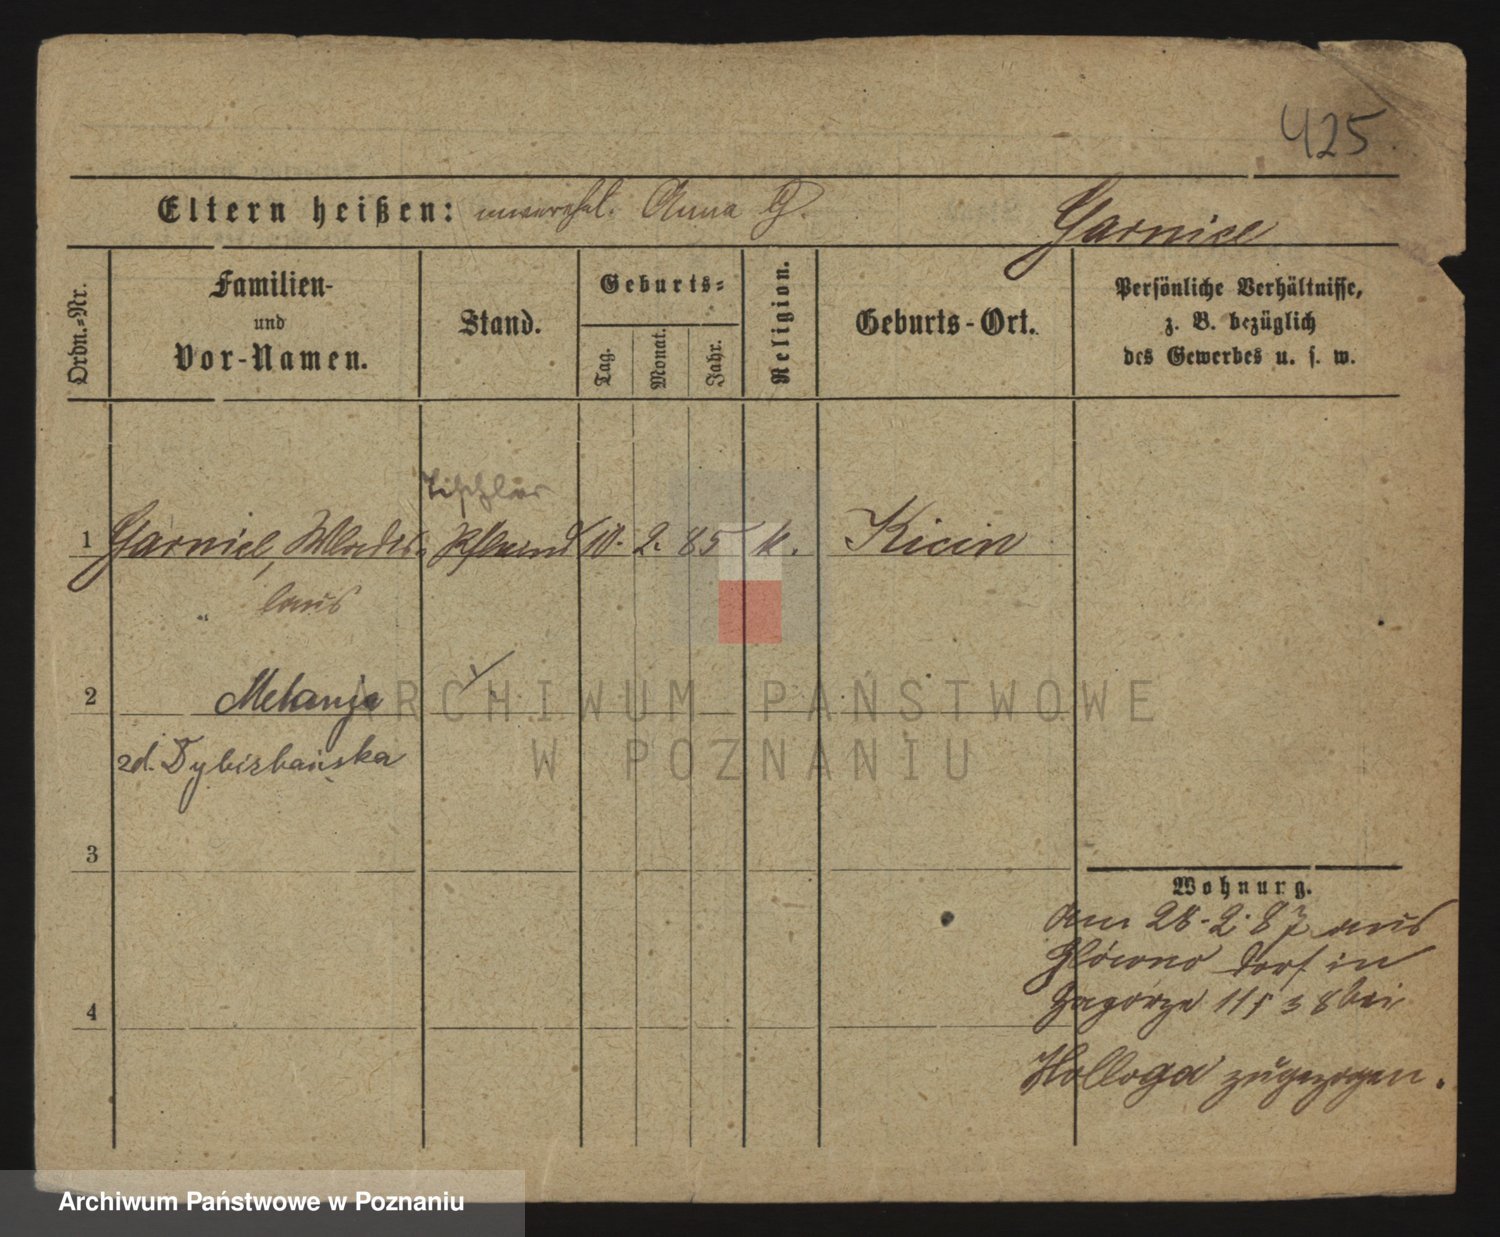 425.
Eltern heißen: unverehel. Anna G.
Garniec
Ordn.-Nr.
Familien-
und
Vor-Namen.
Stand.
Geburts-
Tag.
Monat.
Jahr.
Religion.
Geburts-Ort.
Persönliche Verhältnisse,
z. B. bezüglich
des Gewerbes u. s. w.
Tischler
1 Garniec, Wladis- 10. 2. 85 k. Kicin
laus
2 Melanja
zd. Dybizbańska
3
Wohnung.
am 28.2.87 aus
Główno Dorf in
Zagórze 11 bei
4
Holloga zugezogen.
ARCHIWUM PAŃSTWOWE
W POZNANIU
Archiwum Państwowe w Poznaniu